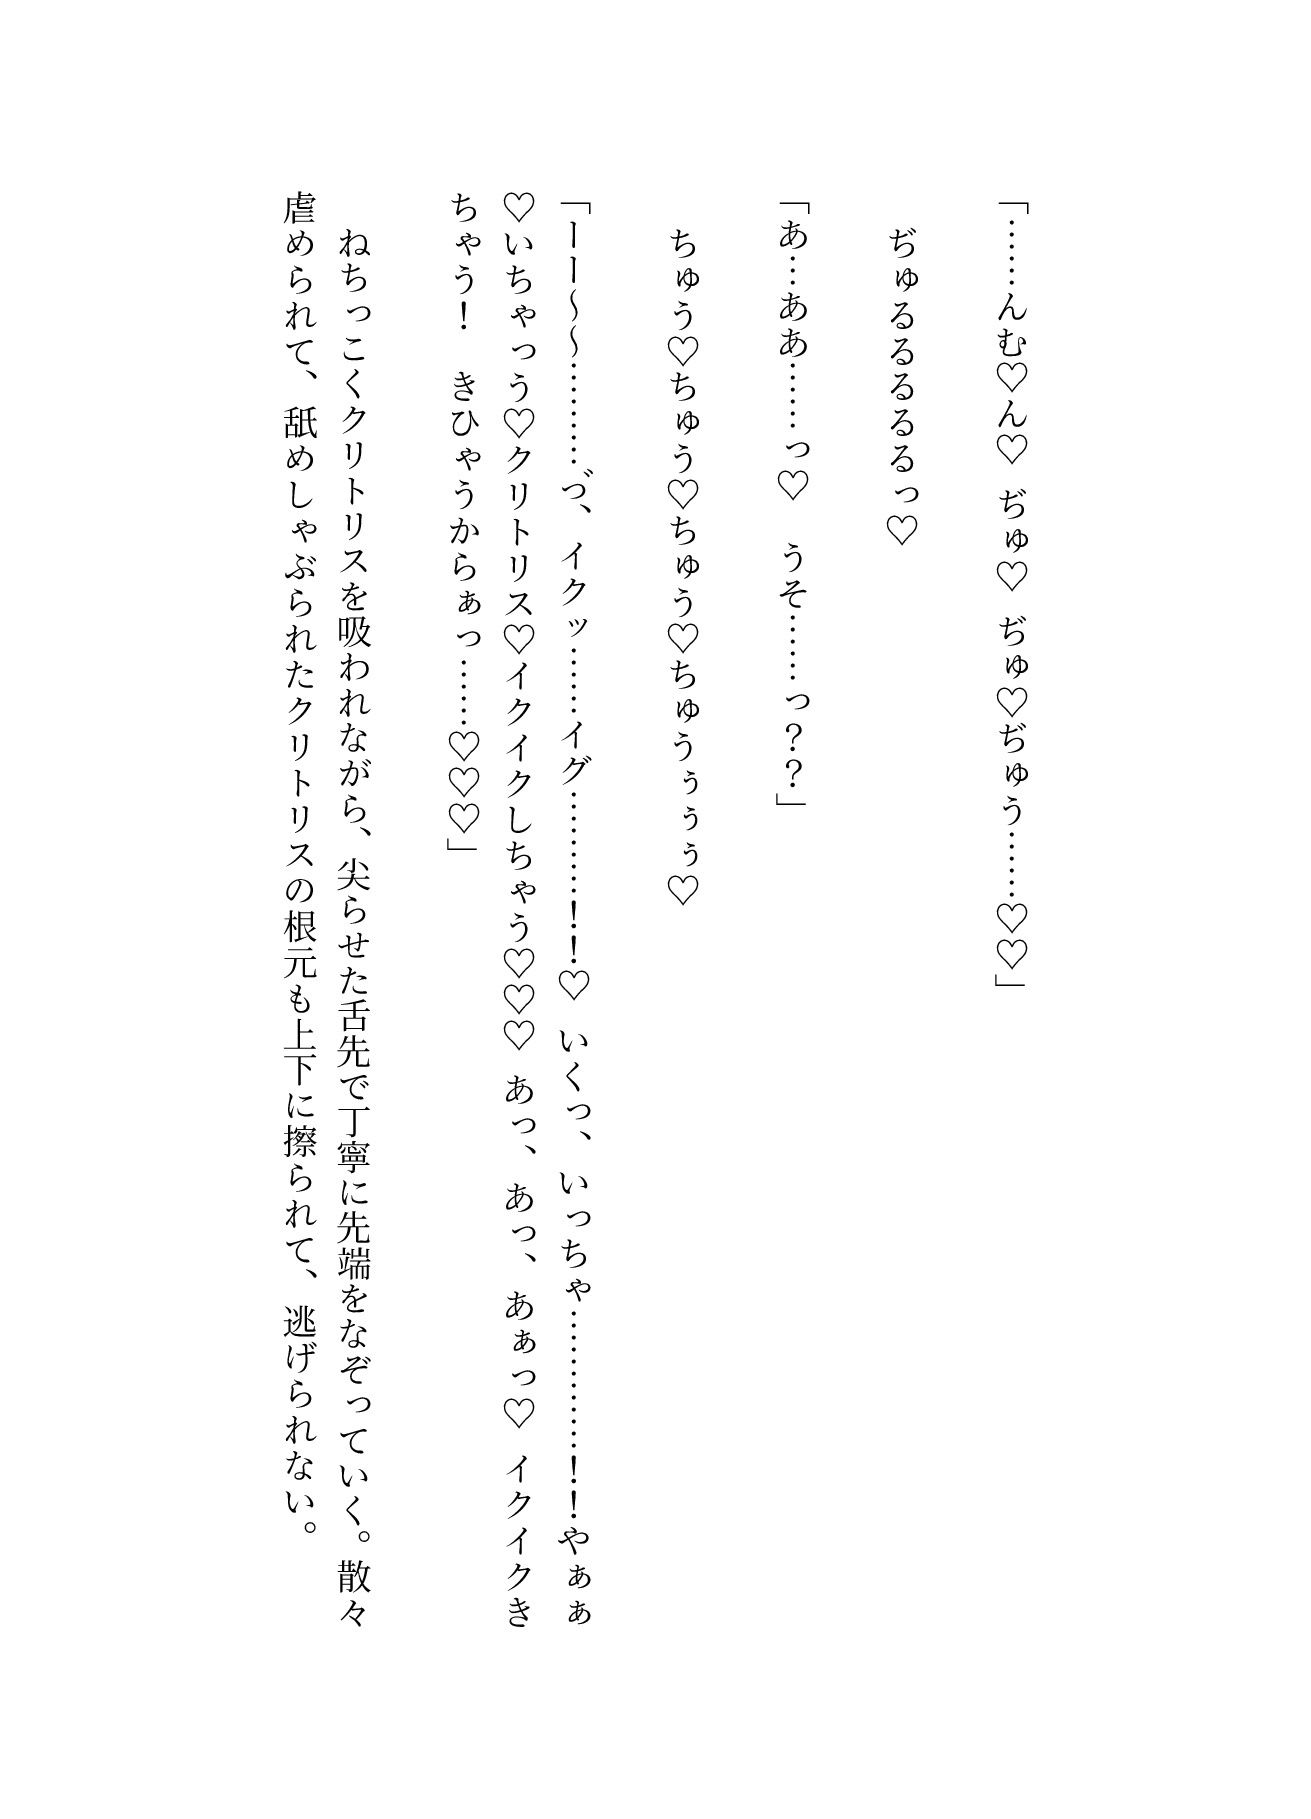 「……んむ♡ん♡　ぢゅ♡　ぢゅ♡ぢゅう……♡♡」
ぢゅるるるるるっ♡
「あ…ああ……っ♡　うそ……っ？？」
ちゅう♡ちゅう♡ちゅう♡ちゅうぅぅぅ♡
「ーー～～………゛づ、イクッ……イグ………！！♡　いくっ、いっちゃ…………！！やぁぁ
♡いちゃっう♡クリトリス♡イクイクしちゃう♡♡♡　あっ、あっ、あぁっ♡　イクイクき
ちゃう！　きひゃうからぁっ……♡♡♡」
ねちっこくクリトリスを吸われながら、尖らせた舌先で丁寧に先端をなぞっていく。散々
虐められて、舐めしゃぶられたクリトリスの根元も上下に擦られて、逃げられない。